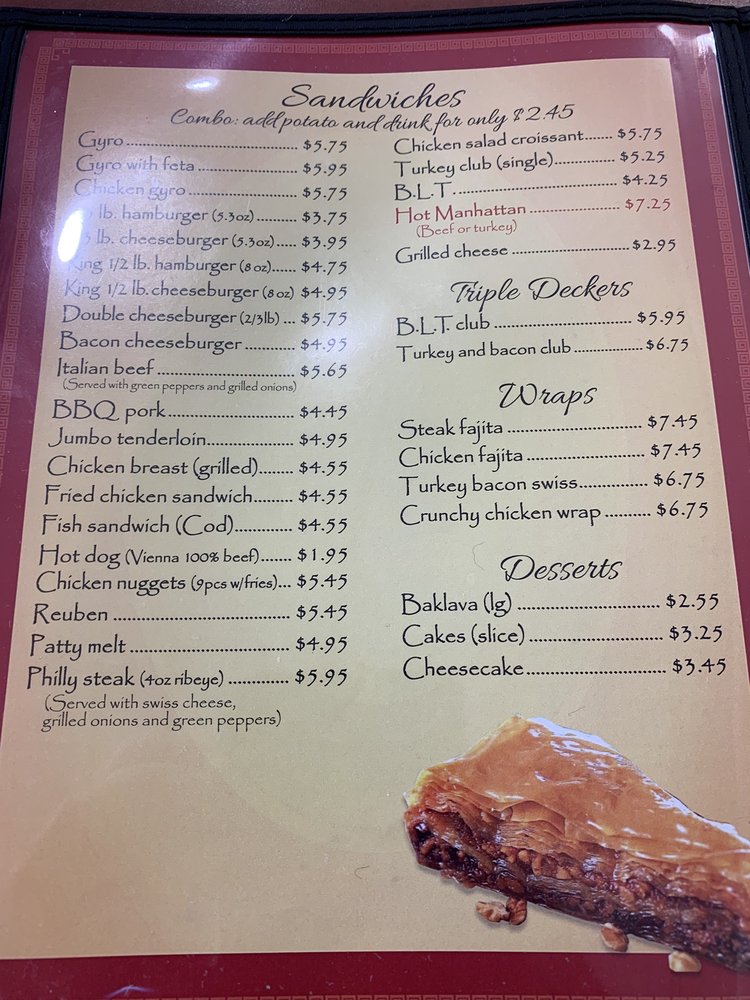 Sandwiches
Combo: add potato and drink for only $2.45
Gyro ........ $5.75
Gyro with feta ........ $5.95
Chicken gyro ........ $5.75
lb. hamburger (5.3oz) ........ $3.75
lb. cheeseburger (5.3oz) ..... $3.95
King 1/2 lb. hamburger (8 oz) ...... $4.75
King 1/2 lb. cheeseburger (8 oz) $4.95
Double cheeseburger (2/3lb) ... $5.75
Bacon cheeseburger ........ $4.95
Italian beef ........ $5.65
(Served with green peppers and grilled onions)
BBQ pork ........ $4.45
Jumbo tenderloin ........ $4.95
Chicken breast (grilled) ....... $4.55
Fried chicken sandwich ........ $4.55
Fish sandwich (Cod) ........ $4.55
Hot dog (Vienna 100% beef) ....... $1.95
Chicken nuggets (9pcs w/fries) ... $5.45
Reuben ........ $5.45
Patty melt ........ $4.95
Philly steak (4oz ribeye) ........ $5.95
(Served with swiss cheese,
grilled onions and green peppers)
Chicken salad croissant ...... $5.75
Turkey club (single) ........ $5.25
B.L.T. ........ $4.25
Hot Manhattan ........ $7.25
(Beef or turkey)
Grilled cheese ........ $2.95
Triple Deckers
B.L.T. club ........ $5.95
Turkey and bacon club ........ $6.75
Wraps
Steak fajita ........ $7.45
Chicken fajita ........ $7.45
Turkey bacon swiss ........ $6.75
Crunchy chicken wrap ........ $6.75
Desserts
Baklava (lg) ........ $2.55
Cakes (slice) ........ $3.25
Cheesecake ........ $3.45